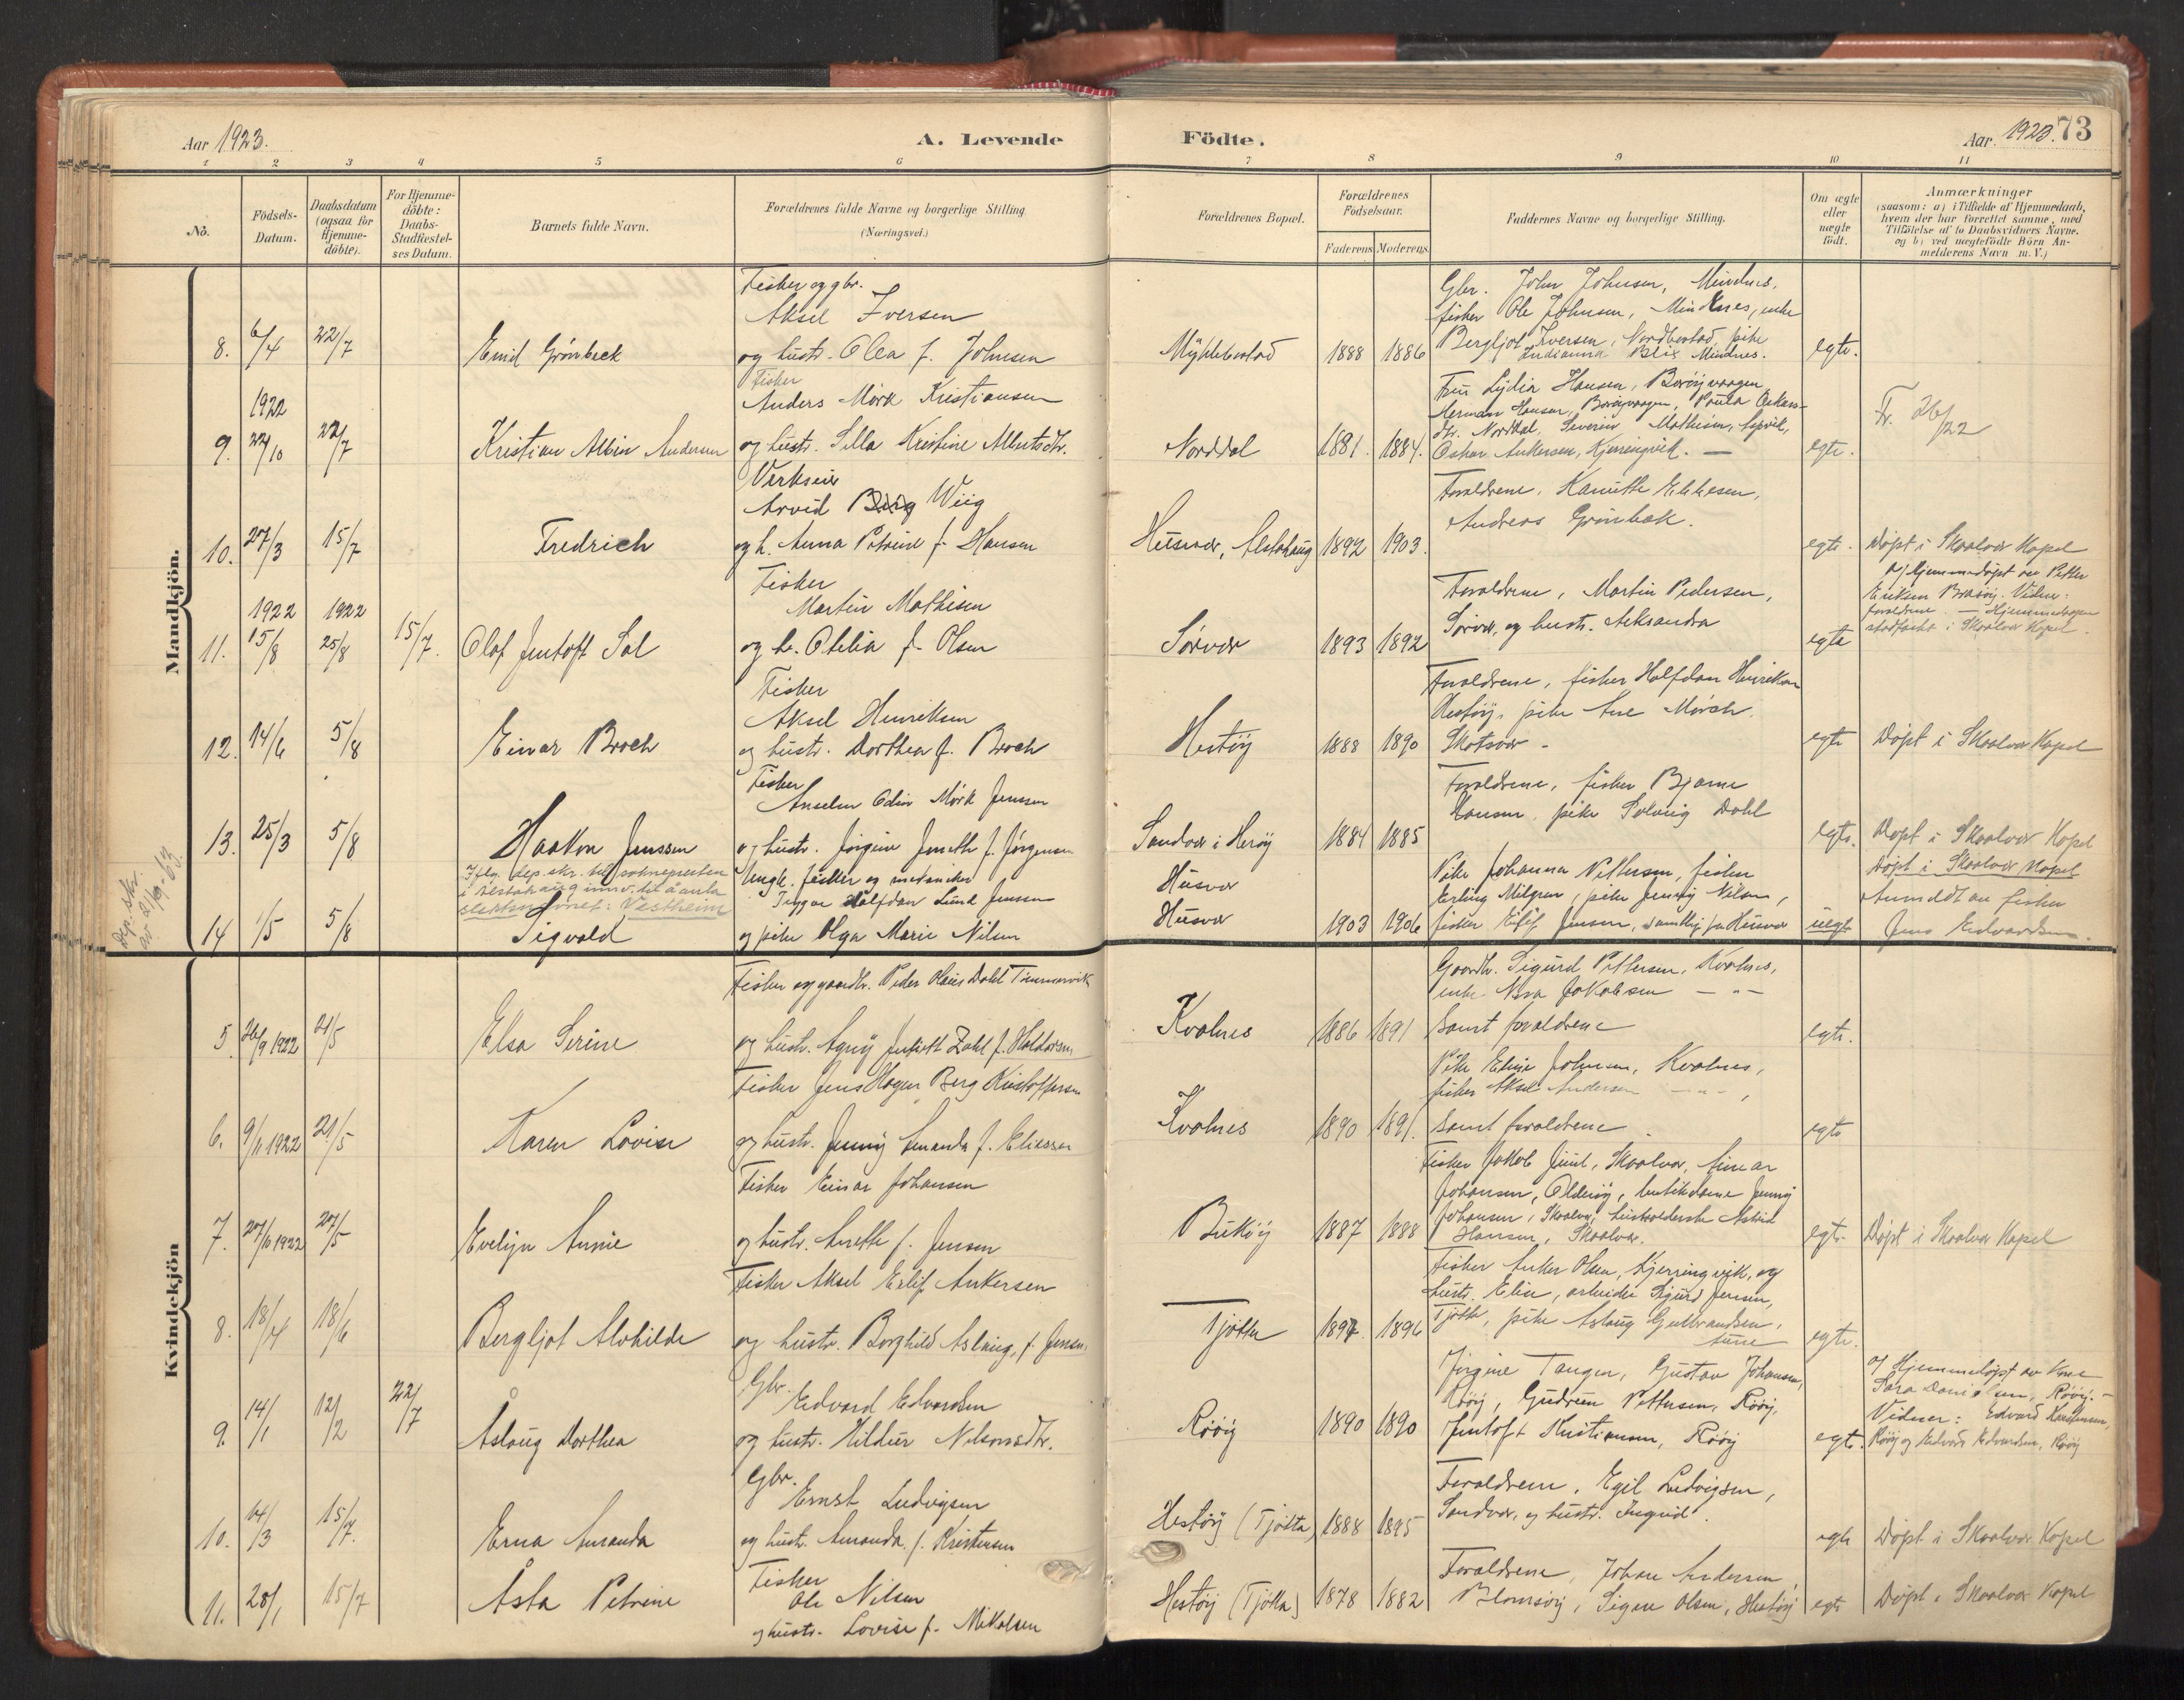 Aar 1923.
A. Levende
Födte.
Aar. 1923. 73
1 2 3 4 5 6 7 8 9 10 11
No.
Födsels-
Datum.
Daabsdatum
(ogsaa for
Hjemme-
döbte).
For Hjemme-
döbte:
Daabs-
Stadfæstel-
ses Datum.
Barnets fulde Navn.
Forældrenes fulde Navne og borgerlige Stilling
(Næringsvei.)
Forældrenes Bopæl.
Forældrenes
Födselsaar.
Faderens Moderens
Faddernes Navne og borgerlige Stilling.
Om ægte
eller
uægte
födt.
Anmærkninger
(saasom: a) i Tilfælde af Hjemmedaab,
hvem der har forrettet samme, med
Tilföielse af to Daabsvidners Navne.
og b) ved uægtefödte Börn An-
melderens Navn m.V.)
Mandkjön.
8. 6/4 22/7
Emil Grönbeck
Fisker og gbr.
Aksel Iversen
og hustr. Olea f. Johnsen
Myklebostad 1888 1886
Gbr. John Johnsen, Mindnes,
fisker Ole Johnsen, Mindnes, enke
Bergljot Iversen, Nordbostad, pike
Indianna Blix Mindnes.
egte.
9. 1922
22/10 22/7
Kristian Albin Andersen
Fisker
Anders Mörk Kristiansen
og hustr. Silla Kristine Albertsdtr.
Norddal 1881. 1884.
Fru Lydia Hansen, Boröyvaagen
Herman Hansen, Boröyvaagen, Paula Ankers-
dtr. Norddal, Severin Mathisen,
Oskar Ankersen, Kjerringvik. —
egte.
Fr. 26/22
10. 27/3 15/7
Fredrich
Verkseier
Arvid Wiig
og h. Anna Petrine f. Hansen
Husvær, Alstahaug 1892 1903.
Forældrene,
Andreas Grönbæk.
egte.
Döpt i Skaalvær Kapel
11. 1922 1922
15/8 25/8 15/7.
Olaf Jentoft Sol
Fisker
Martin Mathisen
og h. Otelia f. Olsen
Sörvær 1893 1892
Forældrene, Martin Pedersen,
Sörvær, og hustr. Aleksandra
egte
a) Hjemmedöpt av Petter
Eriksen Brasöy. Vidner:
forældrene. — Hjemmedaapen
stadfæstet i Skaalvær Kapel.
12. 14/6 5/8
Einar Broch
Fisker
Aksel Henriksen
og hustr. Dorthea f. Broch
Hestöy 1888 1890
Forældrene, fisker Halfdan Henriksen
Hestöy, pike Ane Mörch.
Skotsvær –
egte
Döpt i Skaalvær Kapel
13. 25/3 5/8
Haakon Jenssen
Fisker
Anselm Odin Mörk Jenssen
og hustr. Jörgine Jeneth f. Jörgensen
Sandvær i Heröy 1884 1885
Forældrene, fisker Bjarne
Hansen, pike Solveig Dahl
egte.
Döpt i Skaalvær Kapel
Iflg. dep. skr. til soknepresten
i Alstahaug innv. til å anta
slektsnavnet: Vestheim
dep. skr.
av 21/9-63.
14 1/5 5/8
Sigvald
Ungk. fisker og mekaniker
Trygve Halfdan Lund Jensen
og pike Olga Marie Nilsen
Husvær
Husvær 1903 1906
Pike Johanna Pettersen, fisker
Erling Milgren, pike Jenny Nilsen,
fisker Eilif Jensen, samtlig fra Husvær
uegte
Döpt i Skaalvær Kapel
Anmeldt av fisker
Jens Edvardsen.
Kvindekjön
5. 26/9 1922 21/5
Elsa Serine
Fisker og gaardbr. Peder Olaus Dahl Timmervik
og hustr. Agny Jentoft Zahl f. Haldorsen
Kvalnes 1886 1891
Gaardbr. Sigurd Pettersen, Kvalnes,
enke Nora Jakobsen — " —
Samt forældrene
egte.
6. 9/11 1922 21/5
Karen Lovise
Fisker Jens Hagen Berg Kristoffersen
og hustr. Jenny Amanda f. Eliassen
Kvalnes 1890 1891.
Pike Eline Johnsen, Kvalnes,
fisker Aksel Andersen — " —,
Samt forældrene
egte
7. 27/10 1922 27/5
Evelyn Annie
Fisker Einar Johansen
og hustr. Anette f. Jensen
Buköy 1887 1888
Fisker Jakob Juul, Skaalvær, Einar
Johansen, Olderöy, butikdame Jenny
Johansen, Skaalvær, husholderske Astrid
Hansen, Skaalvær.
egte.
Döpt i Skaalvær Kapel
8. 18/4 18/6
Bergljot Alvhilde
Fisker Aksel Eilif Ankersen
og hustr. Borghild Aslaug, f. Jensen
Tjötta 1897. 1896
Fisker Anker Olsen, Kjerringvik, og
hustr. Elin, arbeider Sigurd Jensen,
Tjötta, pike Aslaug Gulbrandsen,
egte.
9. 14/1 12/2 22/7
Åslaug Dorthea
Gbr.
Edvard Edvardsen
og hustr. Hildur Nelsonsdtr.
Rööy 1890 1890
Jörgine Tangen, Gustav Johansen,
Rööy, Gudrun Pettersen, Rööy,
Jentoft Kristiansen, Rööy
egte.
a) Hjemmedöpt av Kone
Sara Danielsen, Rööy. –
Vidner: Edvard Kristiansen,
Rööy og Edvard Edvardsen, Rööy
10. 14/3 15/7.
Erna Amanda
Gbr.
Ernst Ludvigsen
og hustr. Amanda f. Kristensen
Hestöy (Tjötta) 1888 1895
Forældrene, Egil Ludvigsen,
Sandvær, og hustr. Ingrid.
egte
Döpt i Skaalvær Kapel
11. 28/1 15/7
Åsta Petrine
Fisker
Ole Nilsen
og hustr. Lovise f. Mikalsen
Hestöy (Tjötta) 1878 1882
Forældrene, Johan Andersen,
Blomsöy, Signe Olsen, Hestöy
egte
Döpt i Skaalvær Kapel